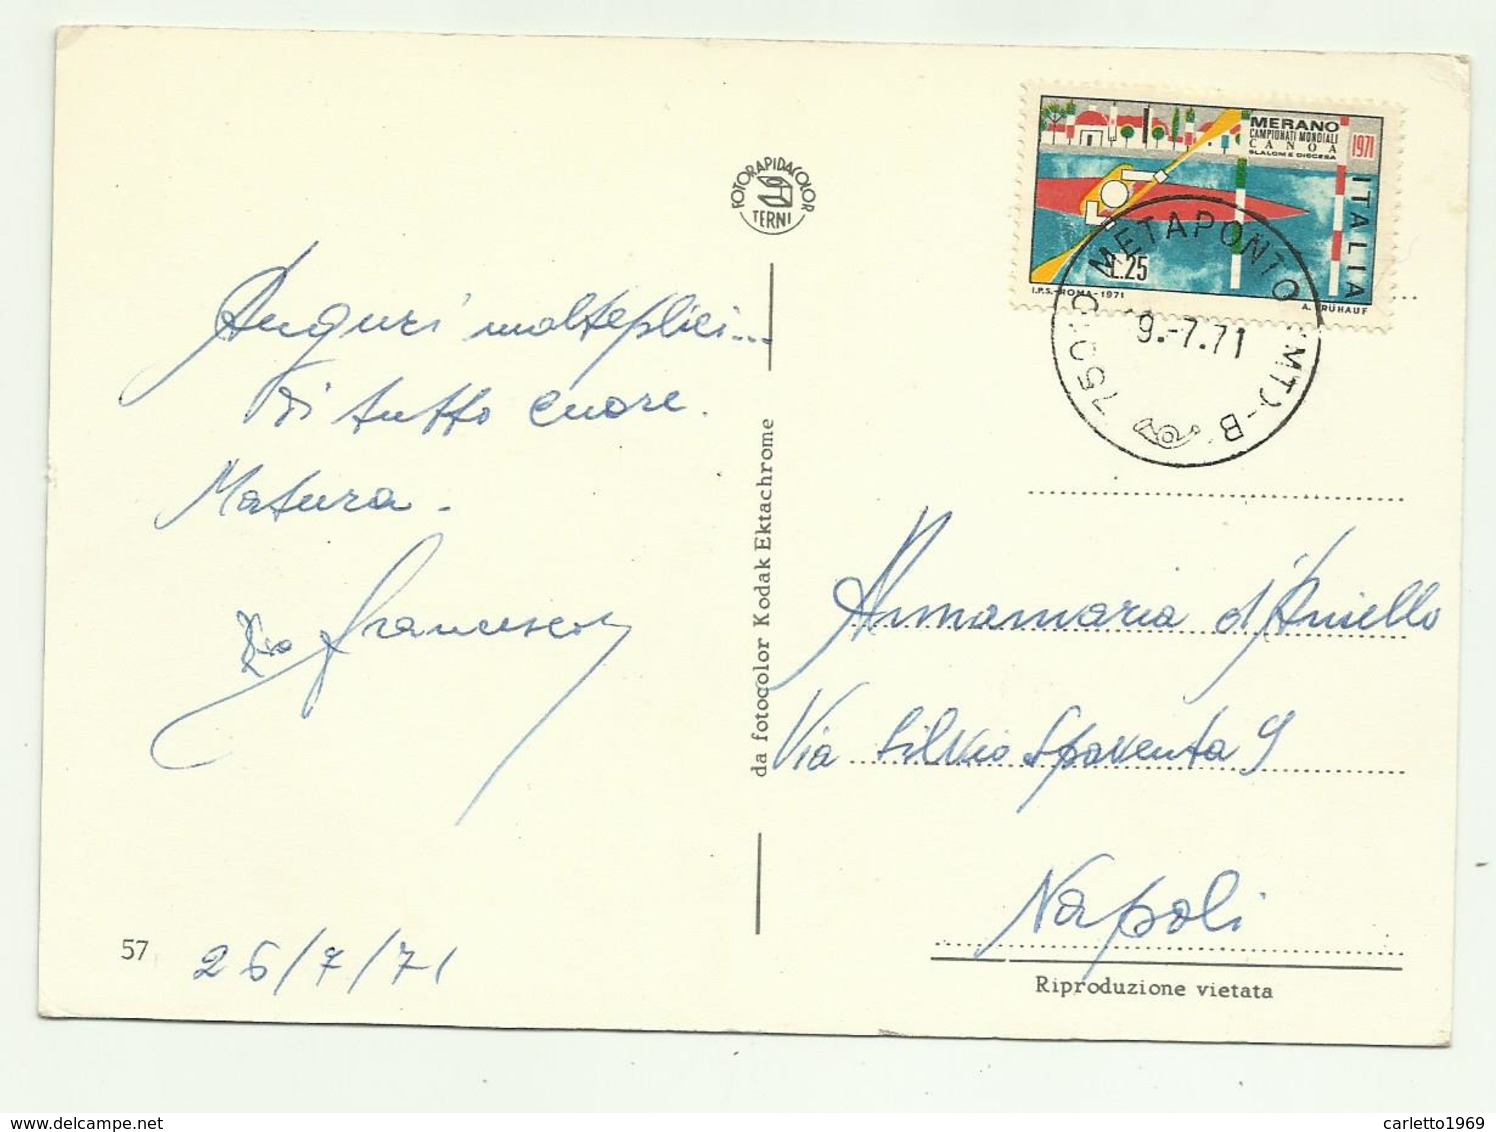 Auguri molteplici...
di tutto cuore.
Matura.
Zio Francesco
57
26/7/71
FOTORAPIDACOLOR
TERNI
da fotocolor Kodak Ektachrome
MERANO
CAMPIONATI MONDIALI
CANOA
SLALOM E DISCESA
1971
ITALIA
L.25
I.P.S.-ROMA-1971
A. FRÜHAUF
75010 METAPONTO (MT)-B
9.-7.71
Annamaria d'Aniello
Via Silvio Spaventa 9
Napoli
Riproduzione vietata
delcampe.net
carletto1969